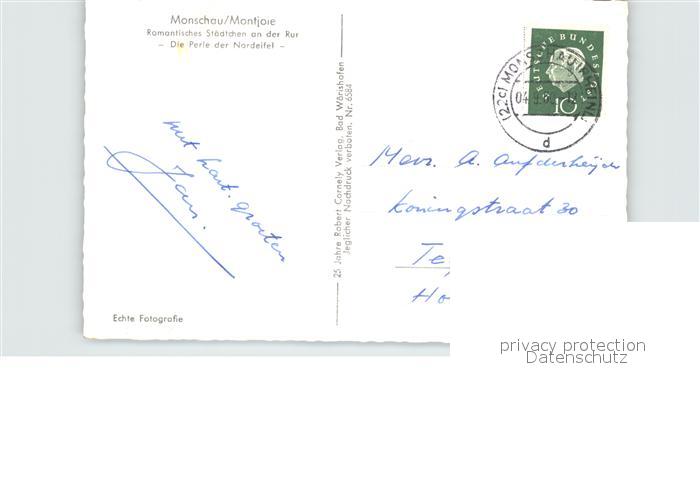 Monschau/Montjoie
Romantisches Städtchen an der Rur
– Die Perle der Nordeifel –
met hart. groeten
Jan.
Echte Fotografie
25 Jahre Robert Cornely, Verlag, Bad Wörishofen
Jeglicher Nachdruck verboten. Nr. 6584
DEUTSCHE BUNDESPOST
10
(22c) MONSCHAU
04.9.60
d
Mevr. A. Aufderheijde
Koningstraat 30
Te
Ho
privacy protection
Datenschutz